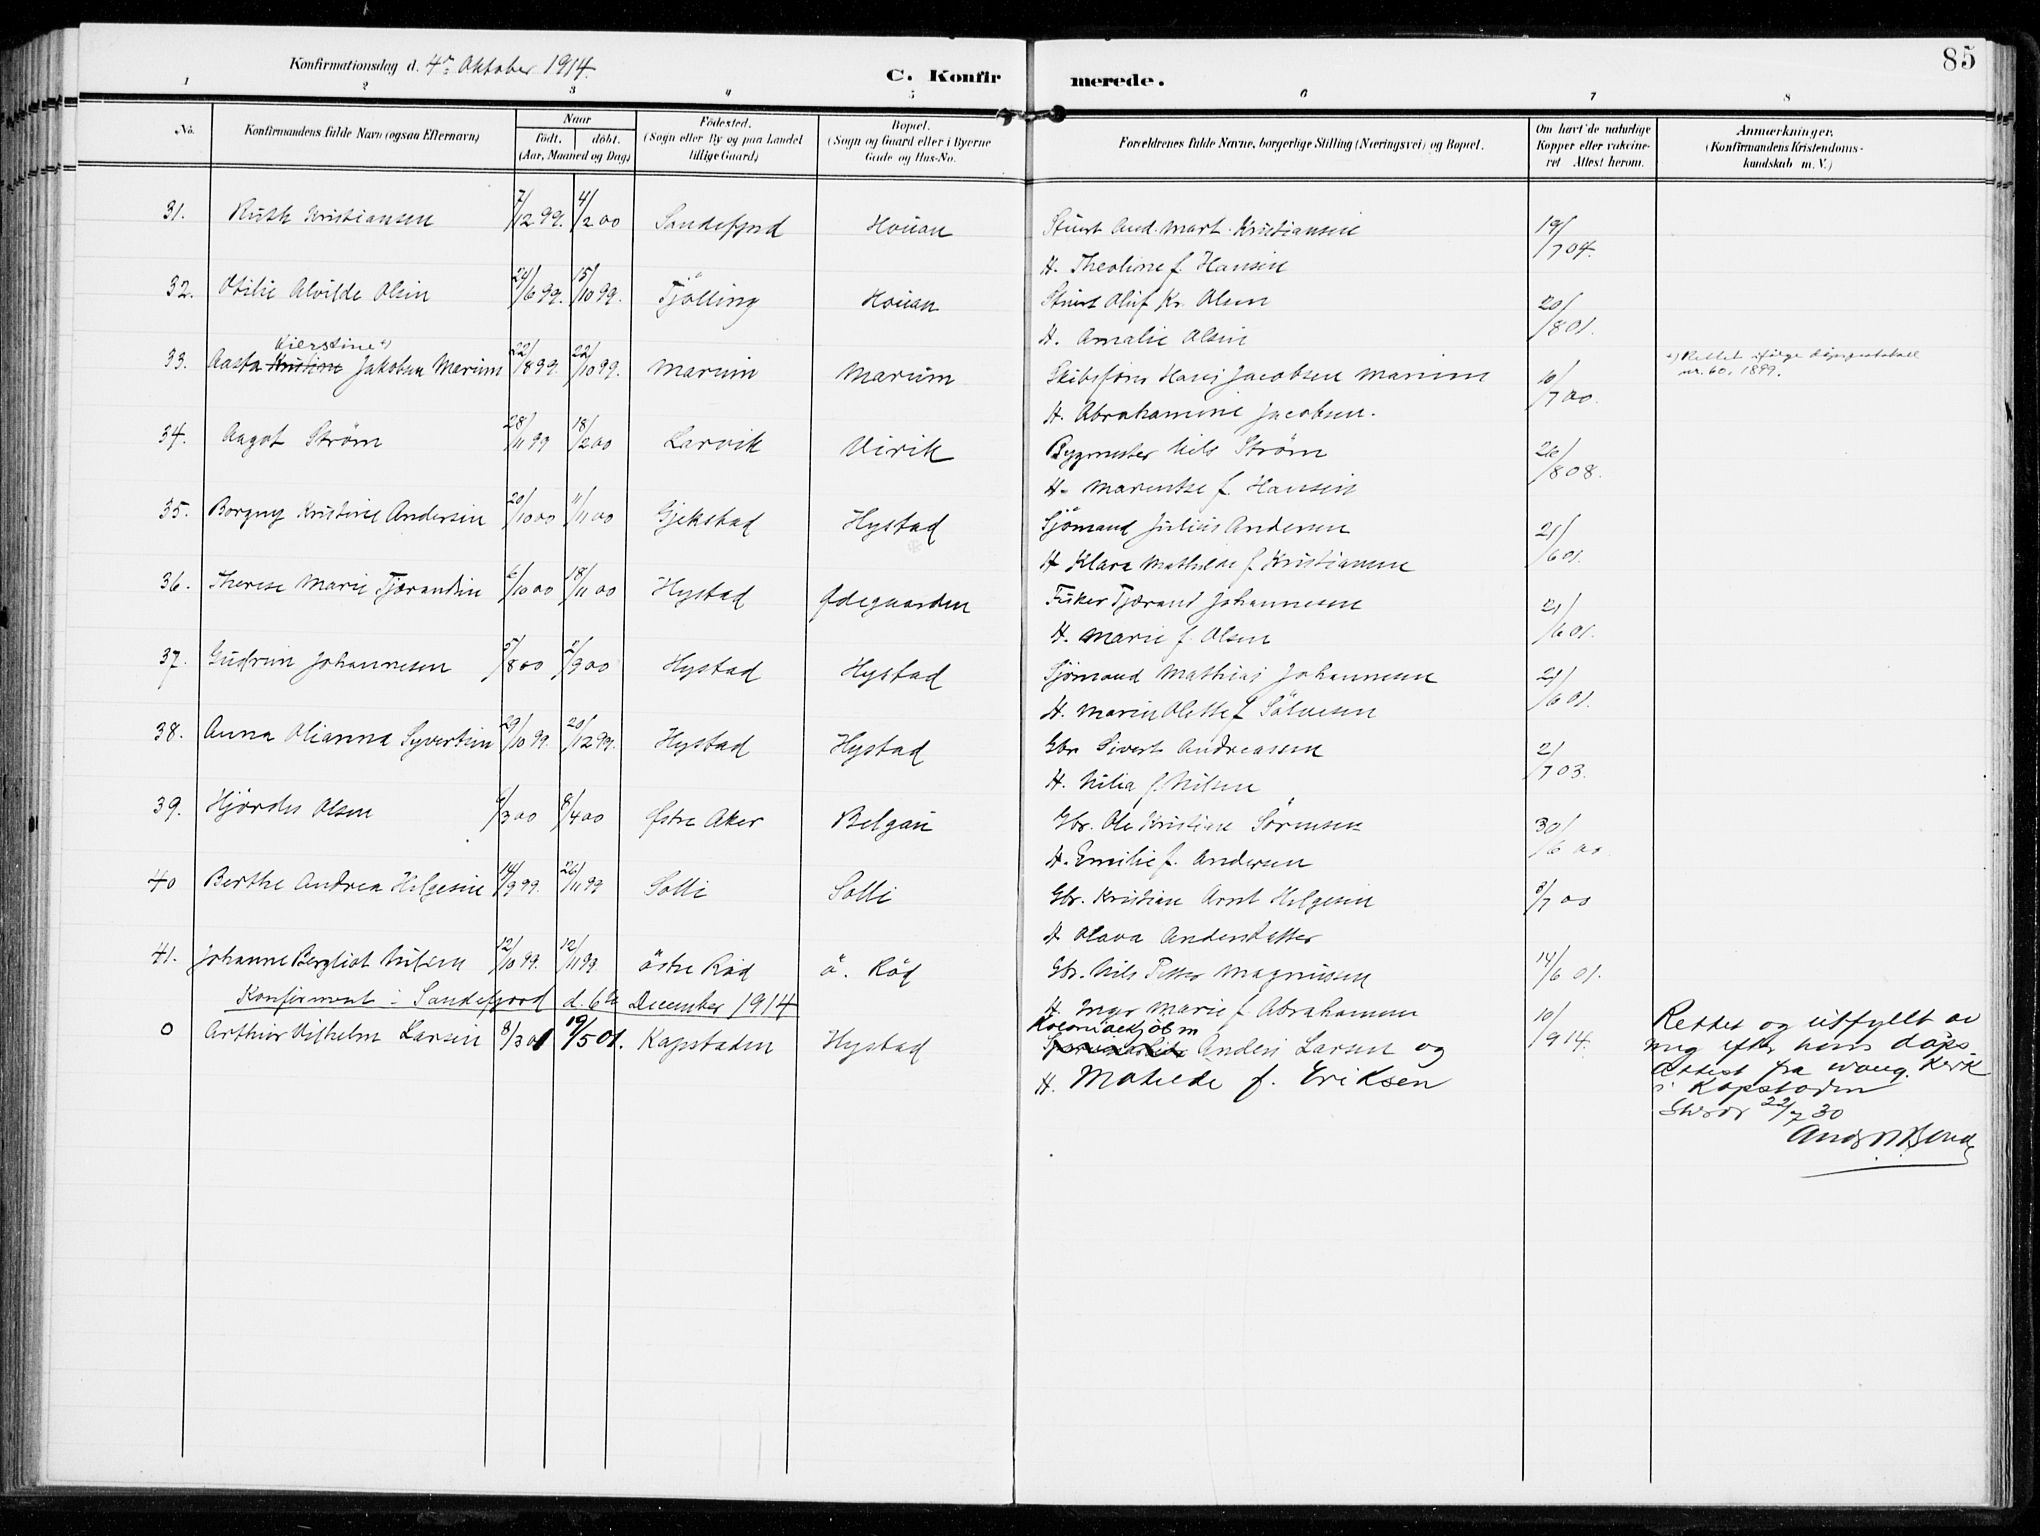 85
Konfirmationsdag d. 4de Oktober 1914.
C. Konfirmerede.
1 2 3 4 5 6 7 8
No. Konfirmandens fulde Navn (ogsaa Efternavn) Naar født. døbt. (Aar, Maaned og Dag) Fødested. (Sogn eller By og paa Landet tillige Gaard) Bopæl. (Sogn og Gaard eller i Byerne Gade og Hus-No. Forældrenes fulde Navne, borgerlige Stilling (Næringsvei) og Bopæl. Om havt de naturlige Kopper eller vakcineret Attest herom. Anmærkninger. (Konfirmandens Kristendomskundskab m. V.)
31. Ruth Kristiansen 7/12 99. 4/2 00 Sandefjord Houan Stuert And. Mart. Kristiansen 19/7 04.
H. Theoline f. Hansen
32. Otilie Alvilde Olsen 24/6 99. 15/10 99. Tjølling Houan Stuert Oluf Kr. Olsen 20/8 01.
H. Amalie Olsen
Kierstine
33. Aasta Kristine Jakobsen Marum 22/8 99. 22/10 99. Marum Marum Skibsfører Hans Jacobsen Marum 10/7 00. Rettet ifølge dåpsprotokoll
nr. 60, 1899.
H. Abrahamine Jacobsen.
34. Aagot Strøm 28/11 99 18/2 00 Larvik Virik Bygmester Nils Strøm 26/8 08.
H. Marentse f. Hansen
35. Borgny Kristine Andersen 20/10 00 11/11 00 Gjekstad Hystad Sjømand Julius Andersen 21/6 01.
H Klara Mathilde f Kristiansen
36. Therese Marie Tjærandsen 6/10 00 18/11 00 Hystad Ødegaarden Fisker Tjærand Johannesen 21/6 01.
H. Marie f. Olsen
37. Gudrun Johannesen 5/8 00 2/9 00 Hystad Hystad Sjømand Mathias Johannesen 21/6 01.
H. Maren Olette f Sølvesen
38. Anna Olianna Syvertsen 29/10 99. 20/12 99. Hystad Hystad Gbr. Sivert Andreassen 2/7 03.
H. Nilia f. Nilsen
39. Hjørdis Olsen 6/3 00 8/4 00 Østre Aker Belgau Gbr. Ole Kristian Sørensen 30/6 00
H. Emilie f. Andersen
40 Berthe Andrea Helgesen 14/9 99. 26/11 99 Solli Solli Gbr. Kristian Arnt Helgesen 3/7 00
H Olava Andersdatter
41. Johanne Bergliot Nilsen 12/10 99. 12/11 99 Østre Rød Ø. Rød Gbr. Nils Petter Magnussen 14/6 01.
H. Inger Marie f. Abrahamsen
Konfirmert i Sandefjord d. 6te December 1914
0 Arthur Vilhelm Larsen 8/3 01 19/5 01. Kapstaden Hystad Anders Larsen og 10/9 14.
H. Matilde f. Eriksen
Rettet og utfyllt av
mig efter hans dåps
attest fra
i Kapstaden
22/7 30